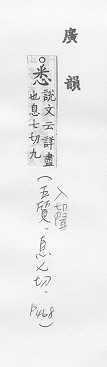 廣韻
。悉
說文云詳盡
也息七切九
(入聲
五質,息七切,P468)